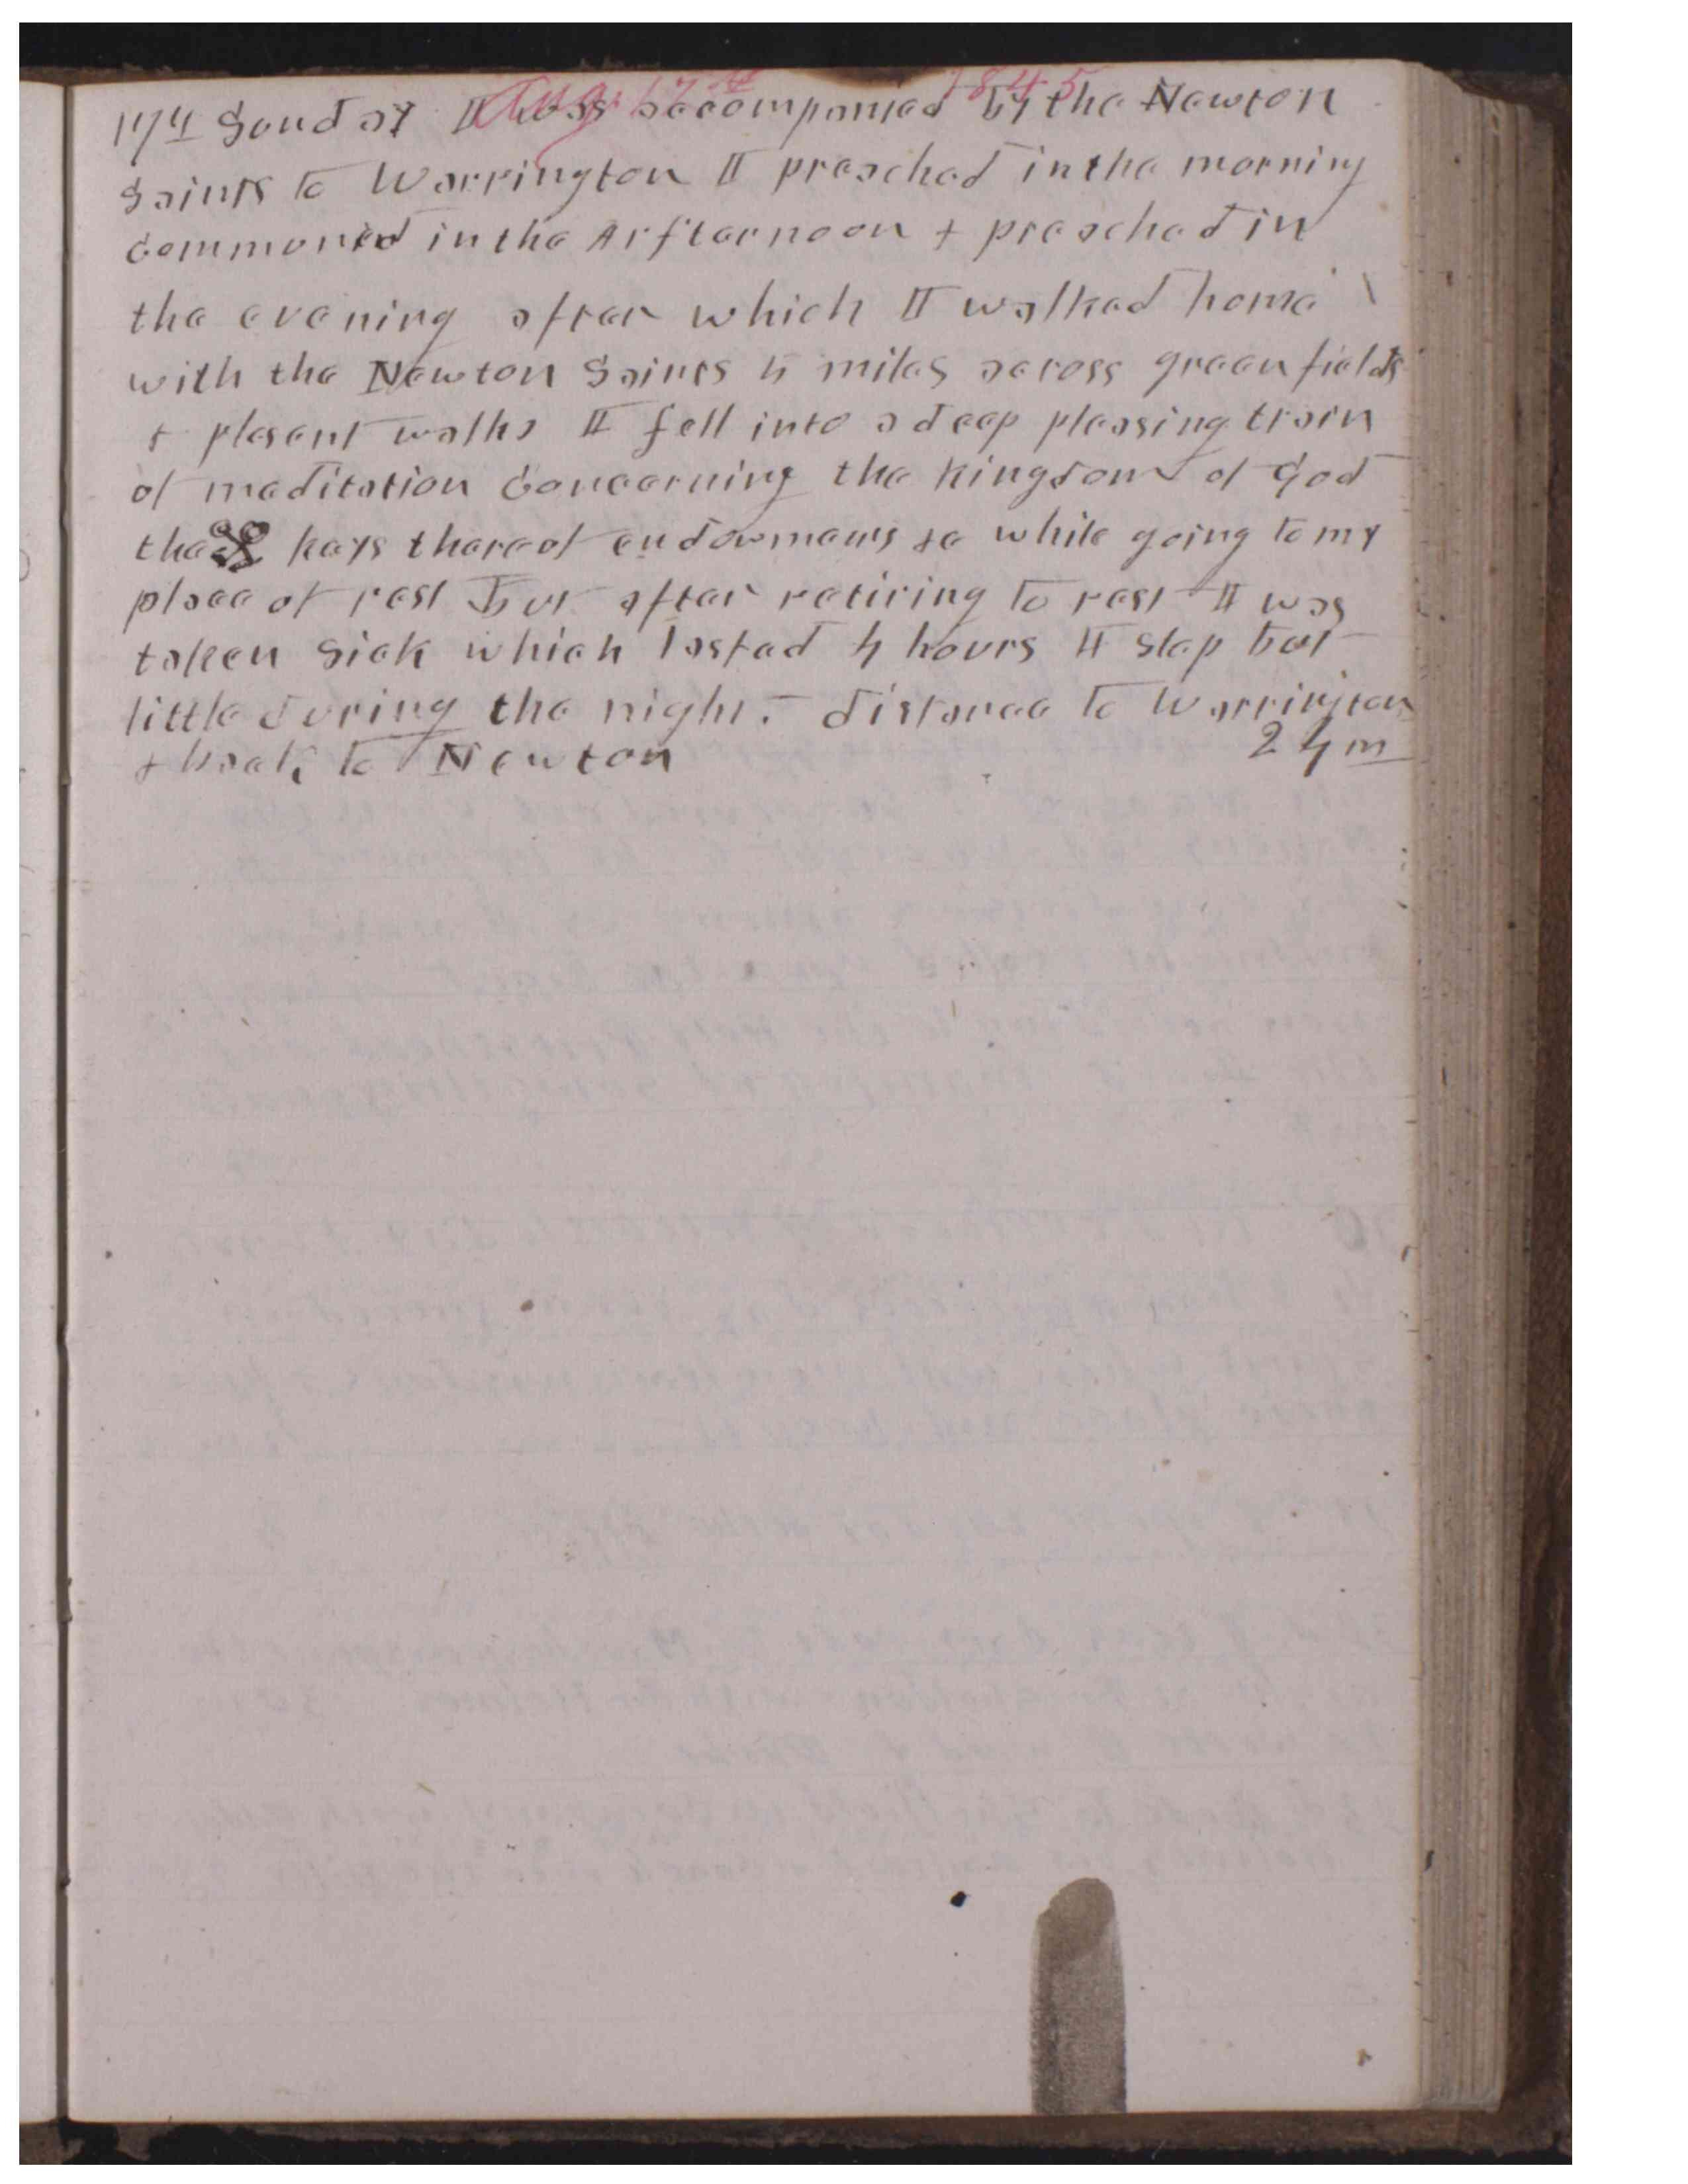 Aug. 17th 1845
17th Sunday I was accompanied by the Newton
Saints to Warrington I preached in the morning
Communed in the Arfternoon & preached in
the evening after which I walked home
with the Newton Saints 4 miles across green fields
& plesent walks I fell into a deep pleasing train
of meditation Concerning the Kingdom of God
the keys thereof endowments &c while going to my
place of rest But after retiring to rest I was
taken Sick which lasted 4 hours I slep but
little during the night. Distance to Warrington
& back to Newton 24 m